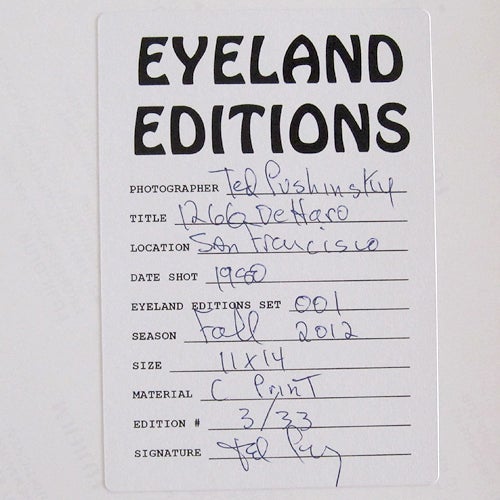 EYELAND
EDITIONS
PHOTOGRAPHER Ted Pushinsky
TITLE 1266 DeHaro
LOCATION San Francisco
DATE SHOT 1980
EYELAND EDITIONS SET 001
SEASON Fall 2012
SIZE 11x14
MATERIAL C PrinT
EDITION # 3/33
SIGNATURE Ted